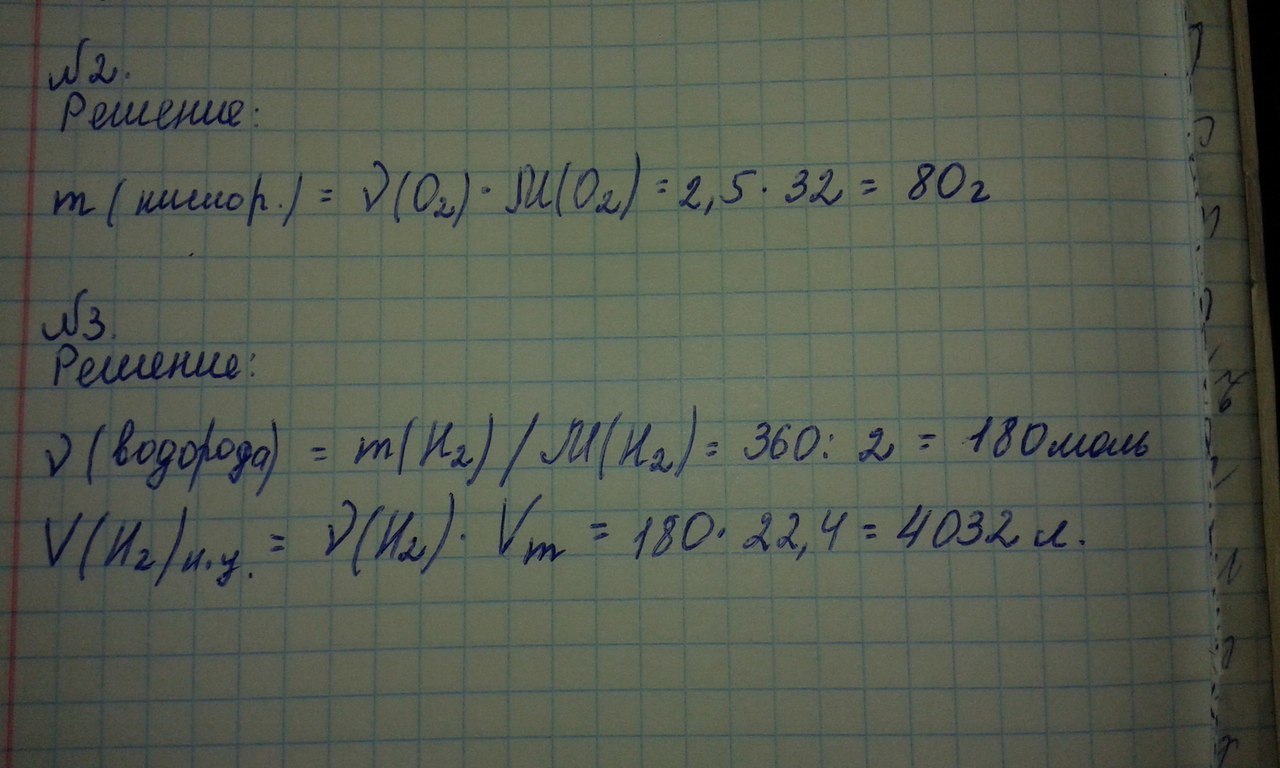 №2.
Решение:
m (кислор.) = ν(O₂) · M(O₂) = 2,5 · 32 = 80г
№3.
Решение:
ν (водорода) = m(H₂) / M(H₂) = 360 : 2 = 180 моль
V(H₂)н.у. = ν(H₂) · Vm = 180 · 22,4 = 4032 л.